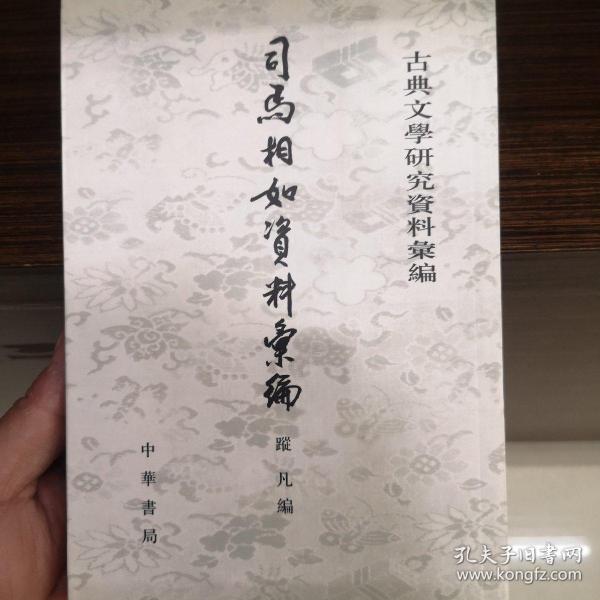 古典文學研究資料彙編
司馬相如資料彙編
蹤凡編
中華書局
孔夫子旧书网
www.kongfz.com